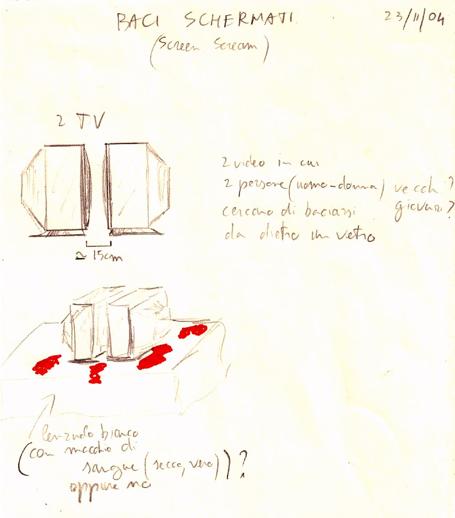 BACI SCHERMATI
23/11/04
(Screen Scream)
2 TV
2 video in cui
2 persone (uomo-donna) vecchi?
cercano di baciarsi giovani?
da dietro un vetro
≃ 15cm
lenzuolo bianco
(con macchie di
sangue (secco, vero))?
oppure no